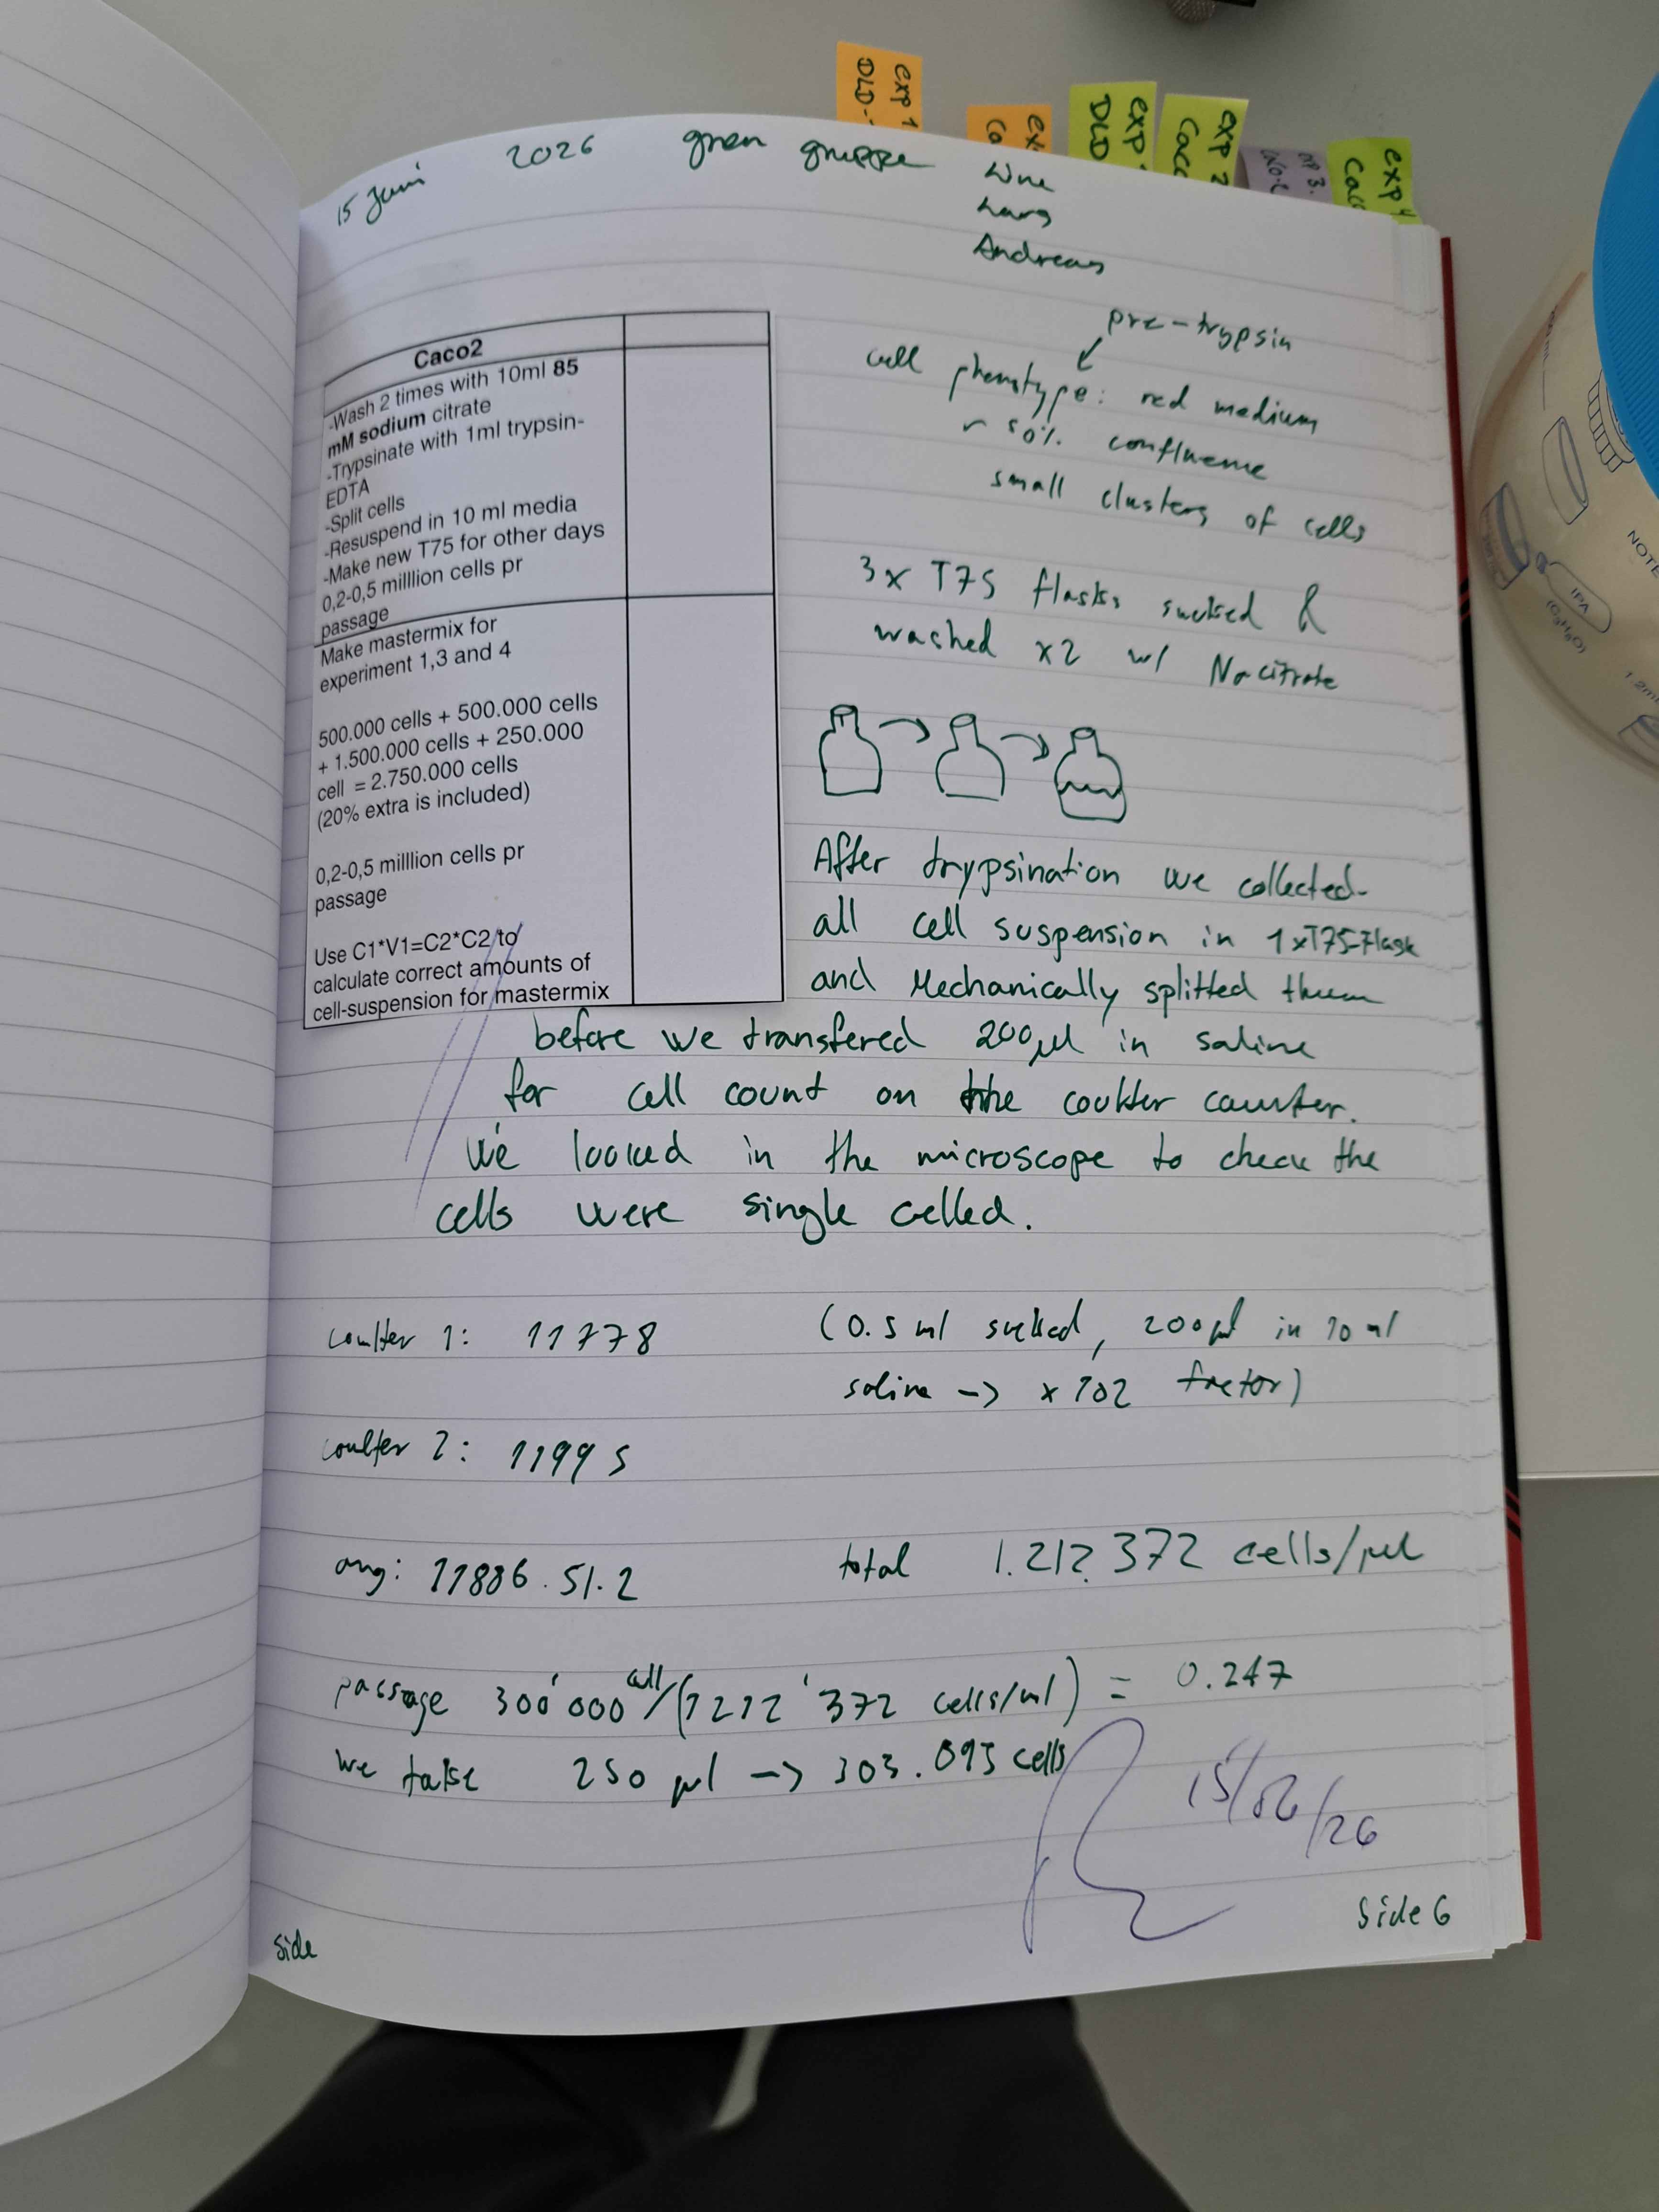 exp 1
DLD-
ex
Co
exp
DLD
exp 2
Cacc
exp 3.
exp 4
Cac
15 Juni 2026 grøn gruppe Line
Lars
Andreas
Caco2
-Wash 2 times with 10ml 85
mM sodium citrate
-Trypsinate with 1ml trypsin-
EDTA
-Split cells
-Resuspend in 10 ml media
-Make new T75 for other days
0,2-0,5 milllion cells pr
passage
Make mastermix for
experiment 1,3 and 4
500.000 cells + 500.000 cells
+ 1.500.000 cells + 250.000
cell = 2.750.000 cells
(20% extra is included)
0,2-0,5 milllion cells pr
passage
Use C1*V1=C2*C2 to
calculate correct amounts of
cell-suspension for mastermix
pre-trypsin
cell phenotype: red medium
~ 50% confluence
small clusters of cells
3x T75 flasks sucked &
washed x2 w/ Na citrate
After trypsination we collected
all cell suspension in 1xT75-Flask
and Mechanically splitted them
before we transfered 200µl in saline
for cell count on the coulter counter.
We looked in the microscope to check the
cells were single celled.
coulter 1: 11778 (0.5 ml sucked, 200µl in 10 ml
saline -> x 102 factor)
coulter 2: 11995
avg: 11886.5 1.2 total 1.212.372 cells/µl
passage 300'000 cell/(1212'372 cells/ml) = 0.247
we take 250 µl -> 303.093 cells
15/06/26
Side 6
Side
NOTE
IPA
(C₃H₈O)
1.2ml